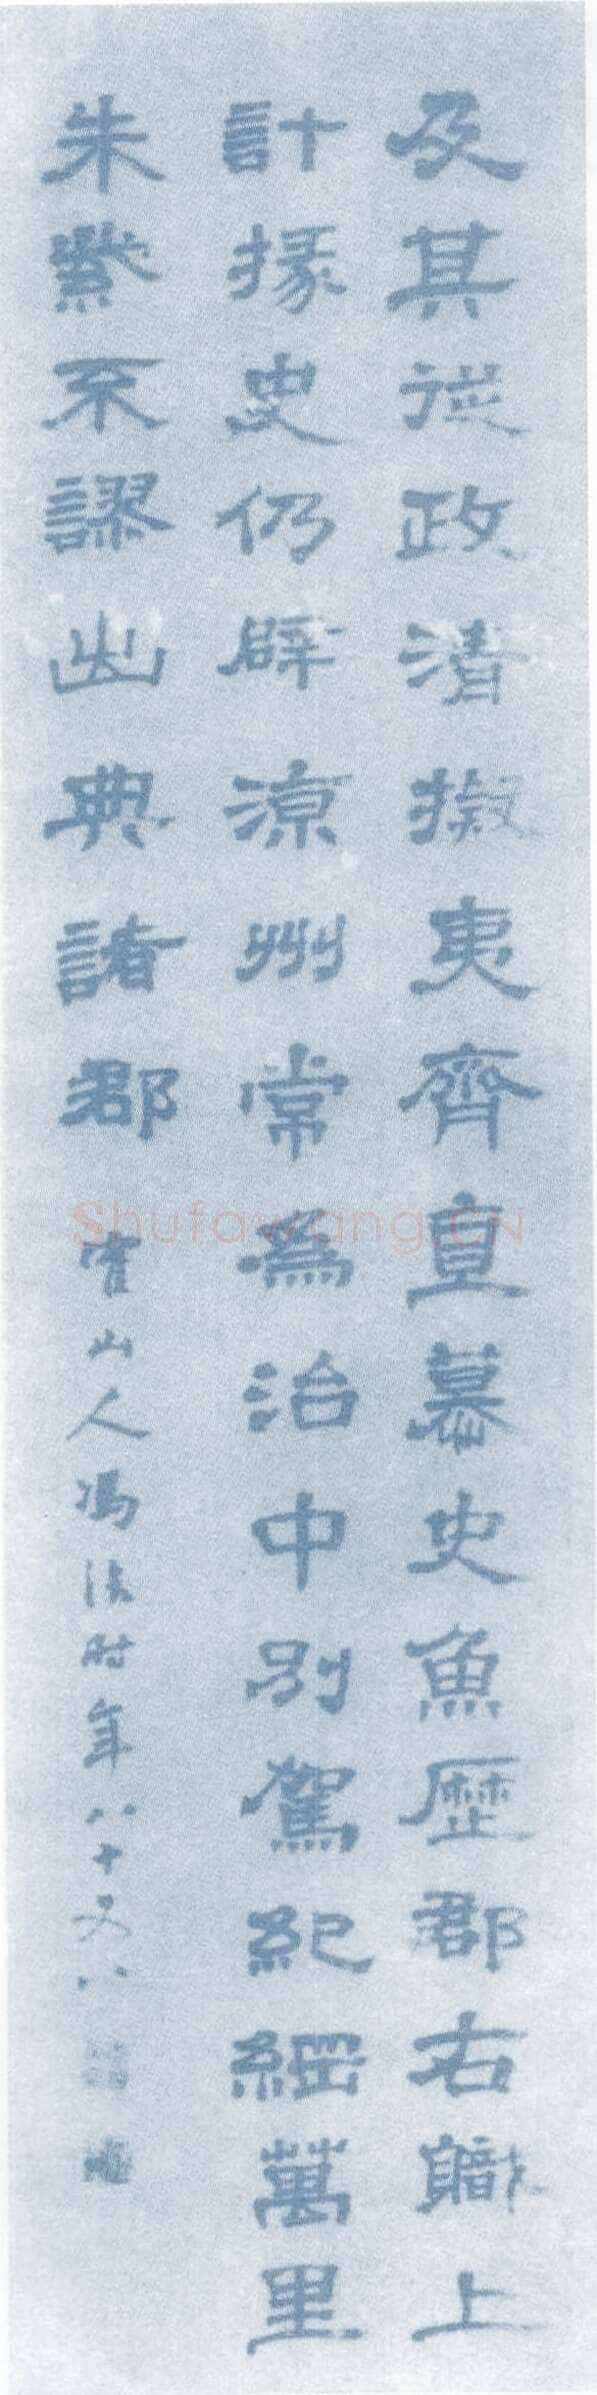 及其從政清擬夷齊直慕史魚歷郡右職上
計掾史仍辟涼州常為治中別駕紀綱萬里
朱紫不謬出典諸郡
霍山人馮法时年八十又八
Shufawang.CN